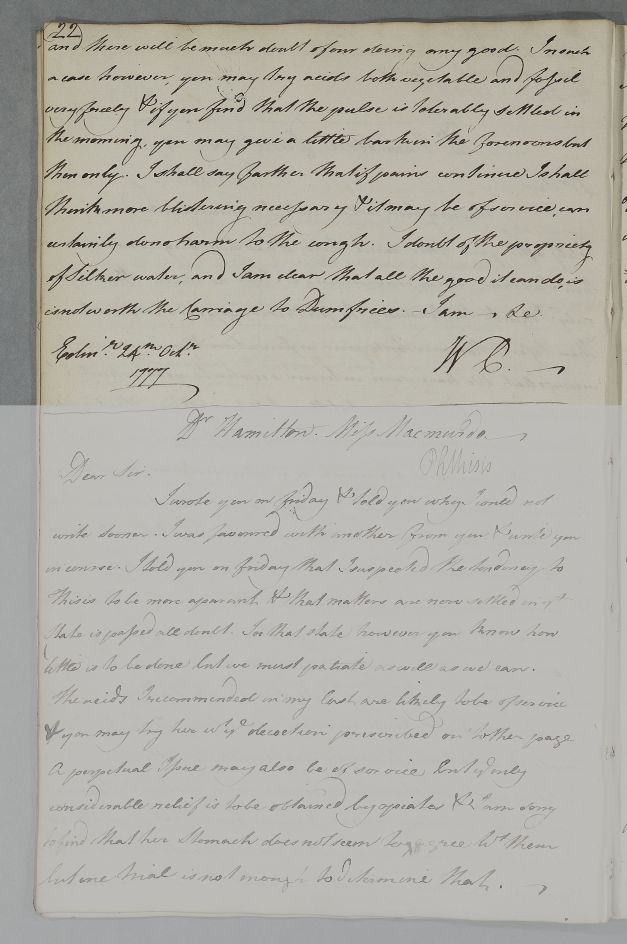 22
and there will be much doubt of our doing any good. In such
a case however, you may try acids both vegetable and fossil
very freely & if you find that the pulse is tolerably settled in
the morning, you may give a little bark in the forenoons but
then only. I shall say farther that if pains continue I shall
think more blistering necessary & it may be of service, can
certainly do no harm to the cough. I doubt of the propriety
of Seltzer water, and I am clear that all the good it can do, is
is not worth the Carriage to Dumfries. I am, &c
Edinr. 24th Octr.
1777
W C.
Dr Hamilton. Miss Macmurdo
Phthisis
Dear Sir.
I wrote you on friday & told you why I could not
write sooner. I was favoured with another from you & write you
in course. I told you on friday that I suspected the tendency to
Thisis to be more aparant & that matters are now settled in yt
state is passed all doubt. In that state however you know how
little is to be done but we must paliate as well as we can.
The acids I recommended in my last are likely to be of service
& you may try her wt ye decoction prescribed on tother page
A perpetual Issue may also be of service But ye only
considerable relief is to be obtained by opiates & I am sorry
to find that her Stomach does not seem to agree wt them
but one trial is not enough to determine that.